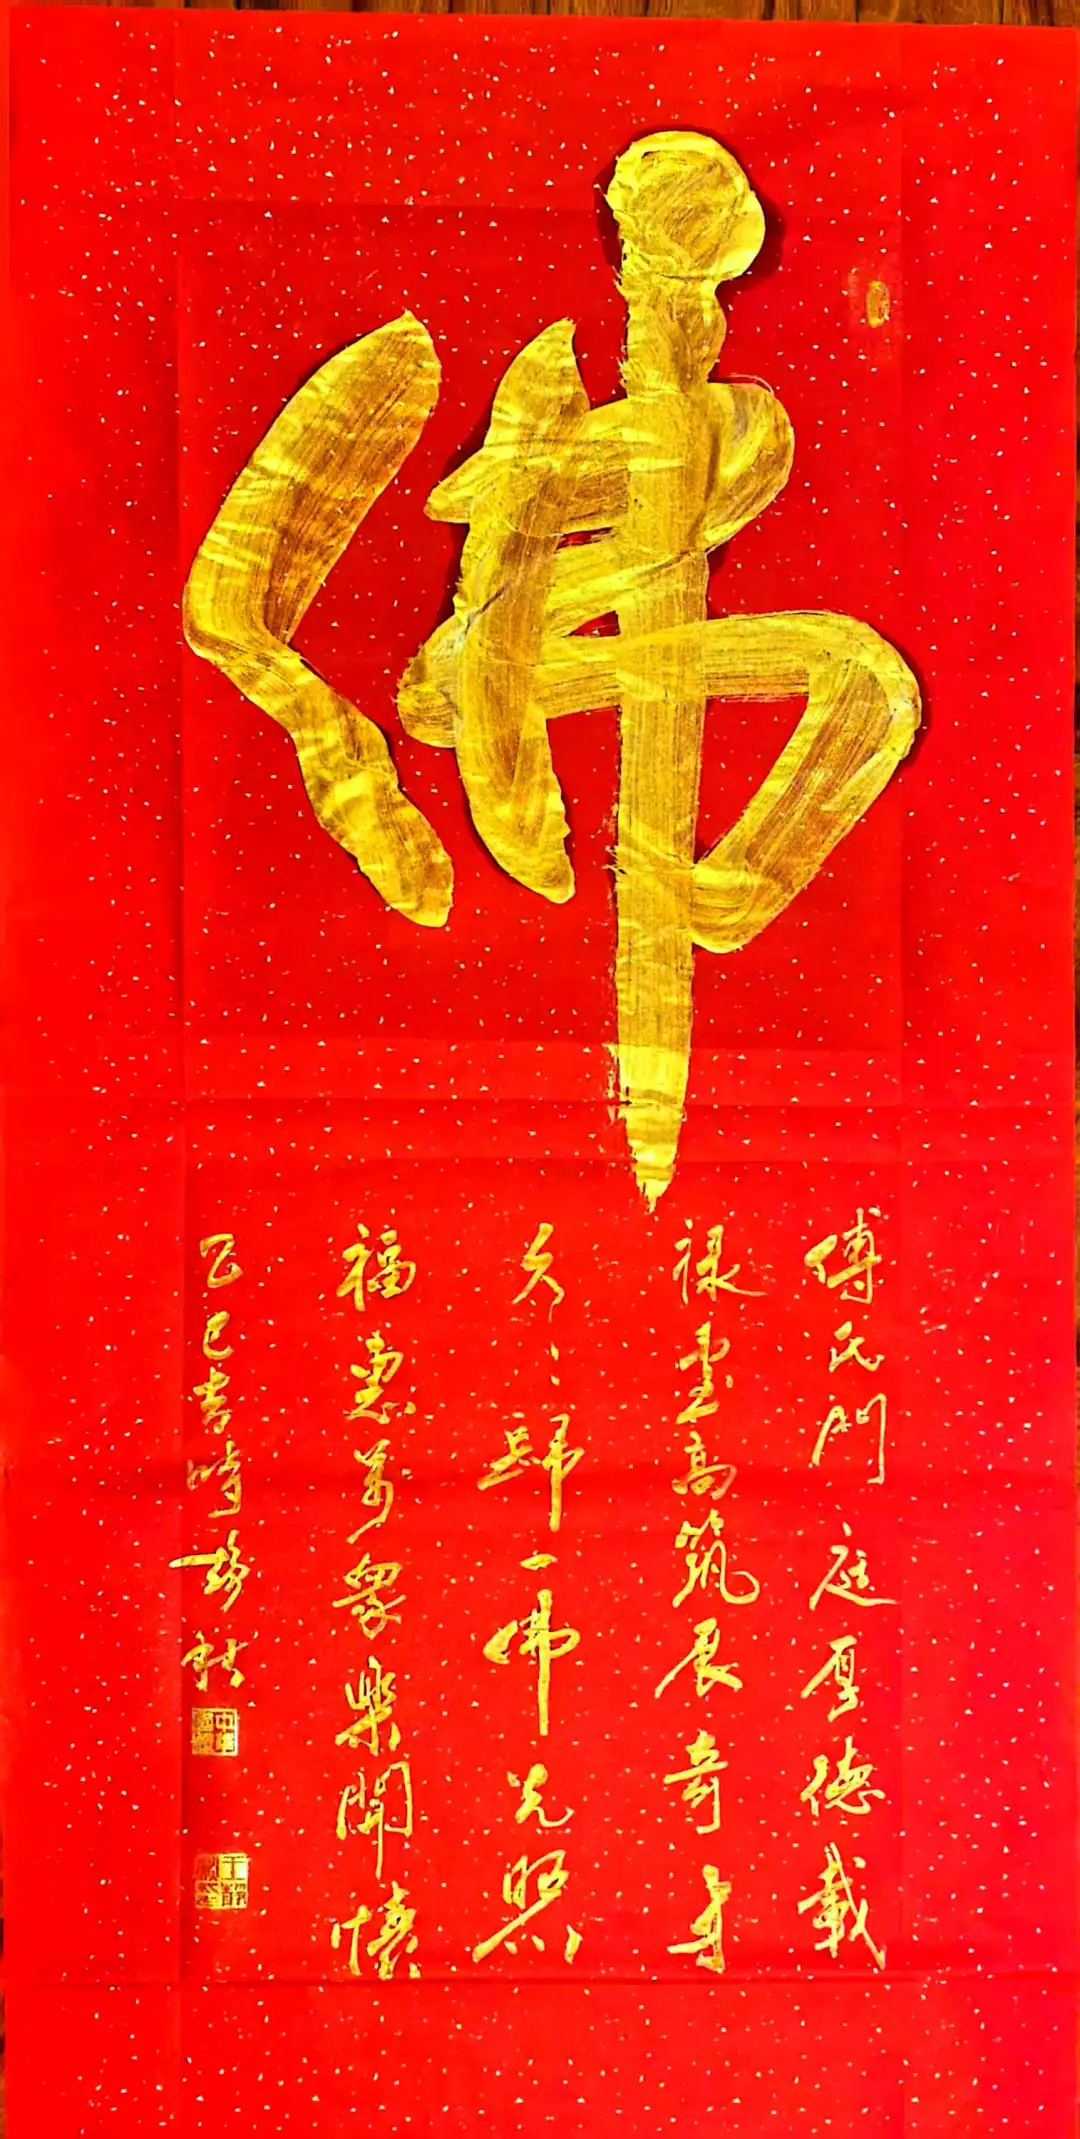 佛
傅氏門庭厚德載
禄臺高筑展奇才
久久歸一佛光照
福惠萬衆樂開懷
乙巳吉時 秋